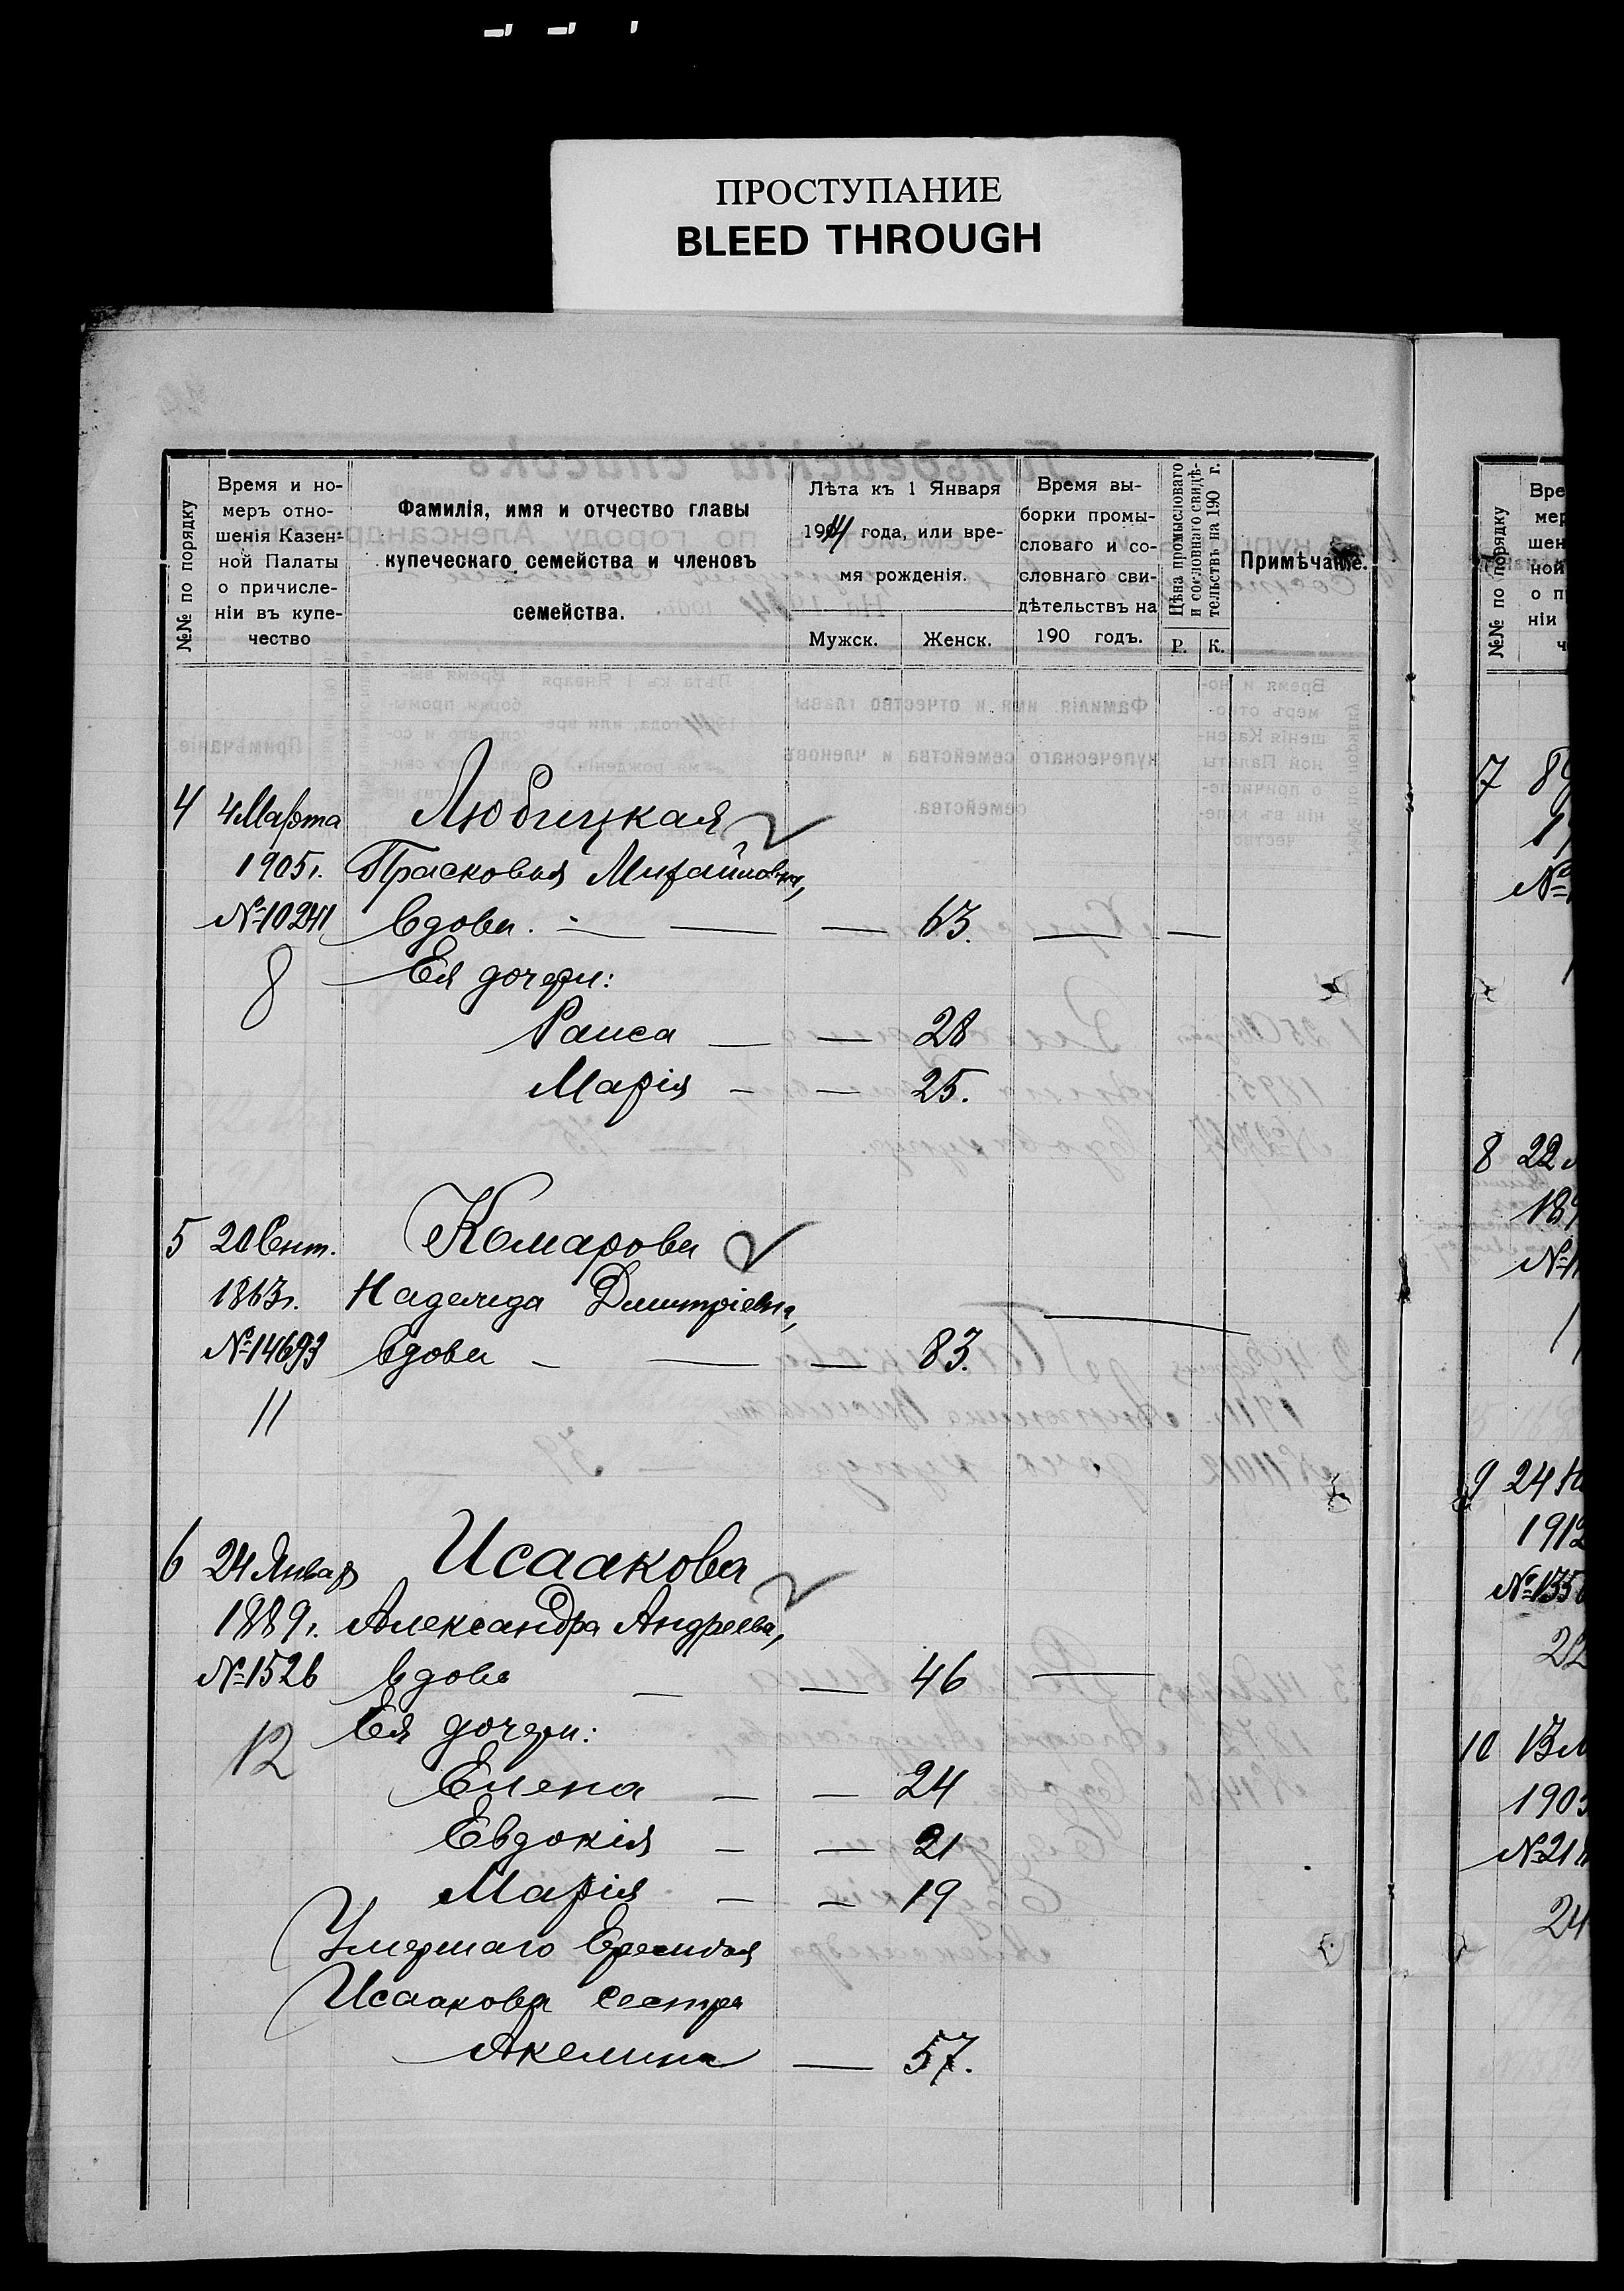 ПРОСТУПАНИЕ
BLEED THROUGH
№№ по порядку
Время и но-
меръ отно-
шенія Казен-
ной Палаты
о причисле-
ніи въ купе-
чество
Фамилія, имя и отчество главы
купеческаго семейства и членовъ
семейства.
Лѣта къ 1 Января
1914 года, или вре-
мя рожденія.
Мужск. Женск.
Время вы-
борки промы-
словаго и со-
словнаго сви-
дѣтельствъ на
190 годъ.
Цѣна промысловаго
и сословнаго свидѣ-
тельствъ на 190 г.
Р. К.
Примѣчаніе.
4 4 Марта Любицкая
1905 г. Прасковья Михайловна,
№ 10241 вдова. — — — 63. — —
8 Ея дочери:
Раиса — — 28
Марія — — 25.
5 20 Сент. Комарова
1863 г. Надежда Дмитріевна,
№ 14693 вдова — — — 83.
11
6 24 Январ Исаакова
1889 г. Александра Андреева,
№ 1526 вдова — — 46 —
12 Ея дочери:
Елена — — 24
Евдокія — — 21
Марія — — 19
Умершаго
Исаакова сестра
Акелина — 57.
№№ по порядку
Вре
мер
шен
ной
о п
ніи
ч
7 89
19
№
8 22
189
№
9 24 Н
1912
№ 1350
22
10 13
1903
№ 21
24